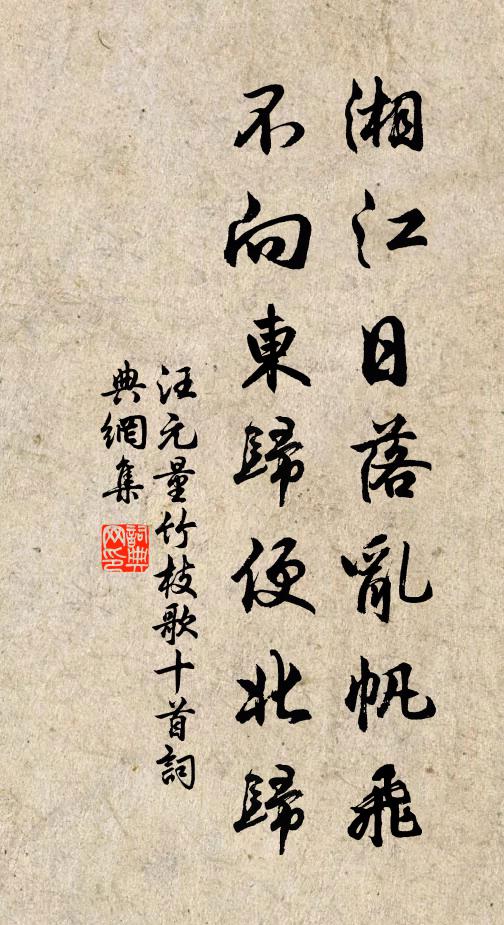 湘江日落亂帆飛
不向東歸便北歸
汪元量竹枝歌十首詞
典網集
詞典網印